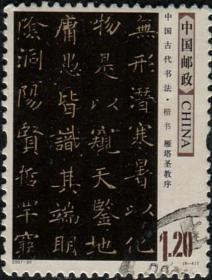 中国邮政
CHINA
中国古代书法·楷书 雁塔圣教序
无形潜寒暑以化
物是以窥天鉴地
庸愚皆识其端明
阴洞阳贤哲罕穷
1.20
2007-30